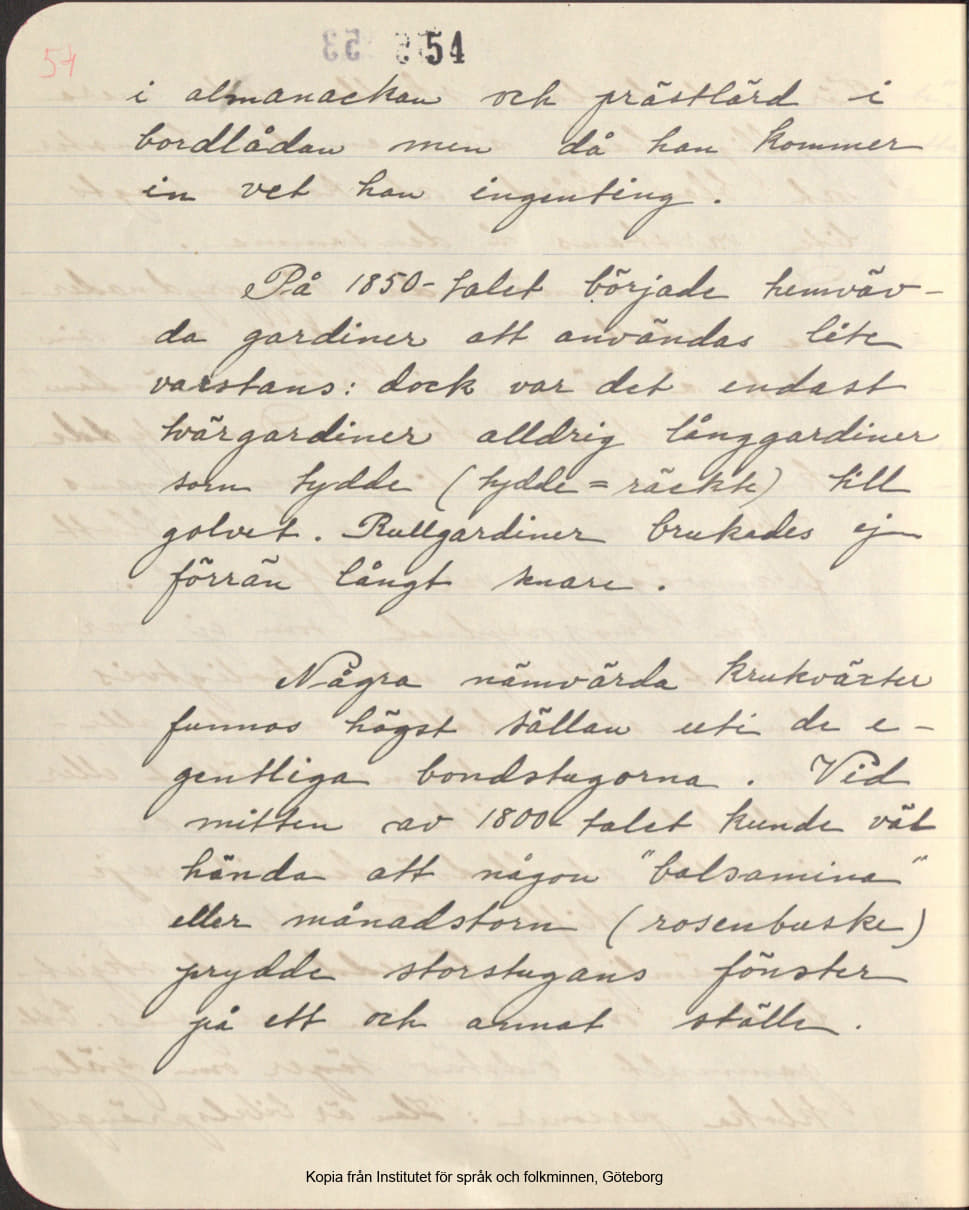 54
54
i almanackan och prästlärd i
bordlådan men då han kommer
in vet han ingenting.
På 1850-talet började hemväv-
da gardiner att användas lite
varstans: dock var det endast
tvärgardiner alldrig långgardiner
som tydde (tydde = räckte) till
golvet. Rullgardiner brukades ej
förrän långt senare.
Några nämvärda krukväxter
funnos högst sällan uti de e-
gentliga bondstugorna. Vid
mitten av 1800-talet kunde väl
hända att någon "balsamina"
eller månadstorn (rosenbuske)
prydde storstugans fönster
på ett och annat ställe.
Kopia från Institutet för språk och folkminnen, Göteborg